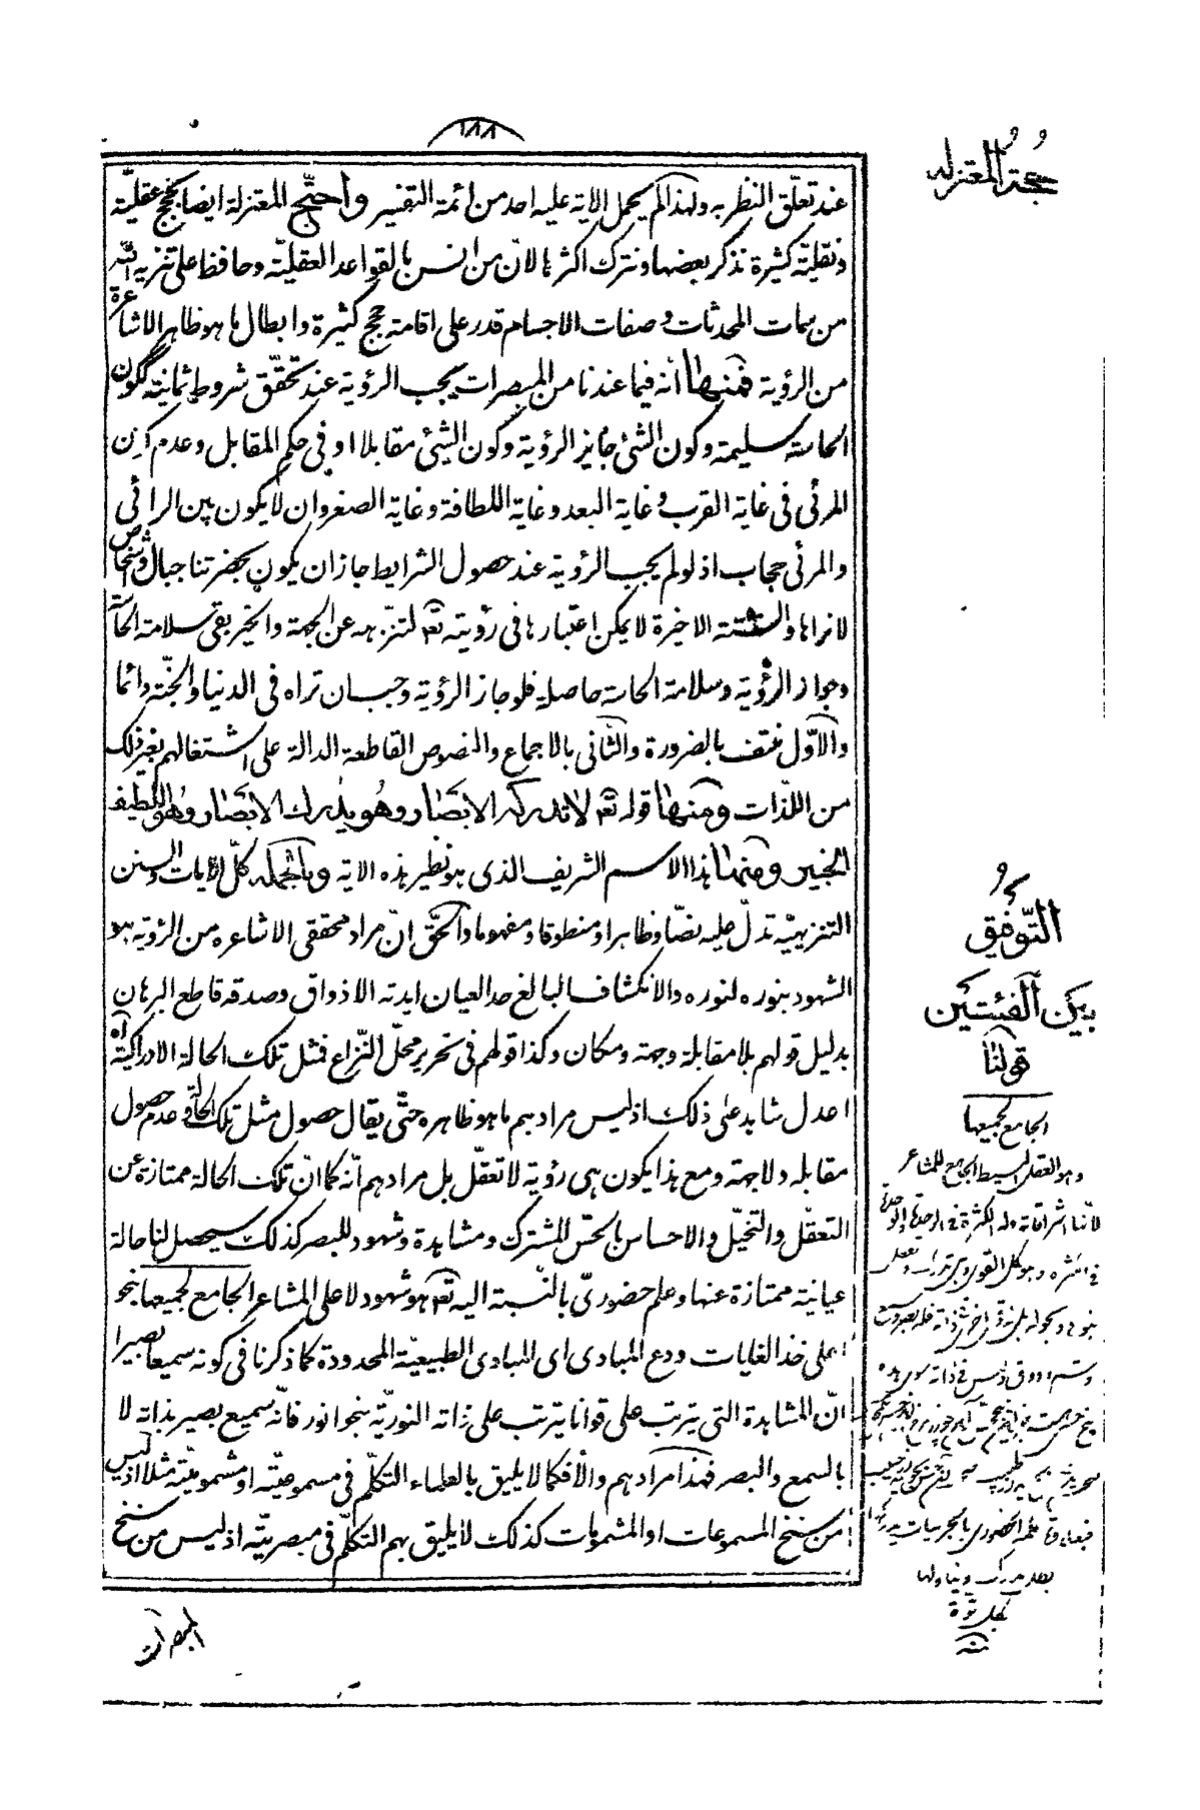 ١٨٨
حجة المعتزله
عند تعلّق النظر به ولهذا لم يحمل الاية عليه احد من ائمة التفسير واحتجّ المعتزلة ايضا بحجج عقليّة
ونقليّة كثيرة نذكر بعضها ونترك اكثرها لانّ من انس بالقواعد العقليّة وحافظ على تنزيه الله
من سمات المحدثات وصفات الاجسام قدر على اقامة حجج كثيرة وابطال ما هو ظاهر الاشاعرة
من الرؤية فمنها انّه فيما عندنا من المبصرات يجب الرؤية عند تحقّق شروط ثمانية ككون
الحاسة سليمة وكون الشئ جايز الرؤية وكون الشئ مقابلا او فى حكم المقابل وعدم كون
المرئى فى غاية القرب وغاية البعد وغاية اللطافة وغاية الصغر وان لا يكون بين الرائى
والمرئى حجاب اذ لو لم يجب الرؤية عند حصول الشرايط جاز ان يكون بحضرتنا جبال واشخاص
لا نراها والستّة الاخيرة لا يمكن اعتبارها فى رؤيته تع لتنزّهه عن الجهة والحيز بقى سلامة الحاسّة
وجواز الرؤية وسلامة الحاسة حاصلة فلو جاز الرؤية وجب ان نراه فى الدنيا والجنّة دائما
والاوّل منتف بالضرورة والثانى بالاجماع والنصوص القاطعة الدالة على اشتغالهم بغير ذلك
من اللذّات ومنها قوله تع لا تدركه الابصار وهو يدرك الابصار وهو اللطيف
الخبير ومنها هذا الاسم الشريف الذى هو نظير هذه الاية وبالجمله كلّ الايات والسنن
التنزيهيّة تدلّ عليه نصّا وظاهرا ومنطوقا ومفهوما والحقّ انّ مراد محققى الاشاعره من الرؤية هو
الشهود بنوره لنوره والانكشاف البالغ حد العيان ايدته الاذواق وصدقه قاطع البرهان
بدليل قولهم بلا مقابلة وجهة ومكان وكذا قولهم فى تحرير محلّ النّزاع فمثل تلك الحالة الادراكيّة اه
اعدل شاهد على ذلك اذ ليس مرادهم ما هو ظاهره حتّى يقال حصول مثل تلك الحالة وعدم حصول
مقابله ولا جهة ومع هذا يكون هى رؤية لا تعقّل بل مرادهم أنّه كما انّ تلك الحالة ممتازة عن
التعقّل والتخيّل والاحساس بالحسّ المشترك ومشاهدة وشهود للبصر كذلك سيحصل لنا حالة
عيانية ممتازة عنها وعلم حضورىّ بالنّسبة اليه تع هو شهود لا على المشاعر الجامع لجميعها بنحو
اعلى خذ الغايات ودع المبادى اى المبادى الطبيعيّة المحدودة كما ذكرنا فى كونه سميعا بصيرا
انّ المشاهدة التى يترتب على قوانا يترتب على ذاته النوريّة بنحو انور فانّه سميع بصير بذاته لا
بالسمع والبصر فهذا مرادهم والّا فكما لا يليق بالعلماء التكلّم فى مسموعيّته او مشموميّته مثلا اذ ليس
من سنخ المسموعات او المشمومات كذلك لا يليق بهم التكلّم فى مبصريّته اذ ليس من سنخ
المبصرات
التّوفيق
بين الفئتين
قولنا
الجامع لجميعها
وهو العقل البسيط الجامع للمشاعر